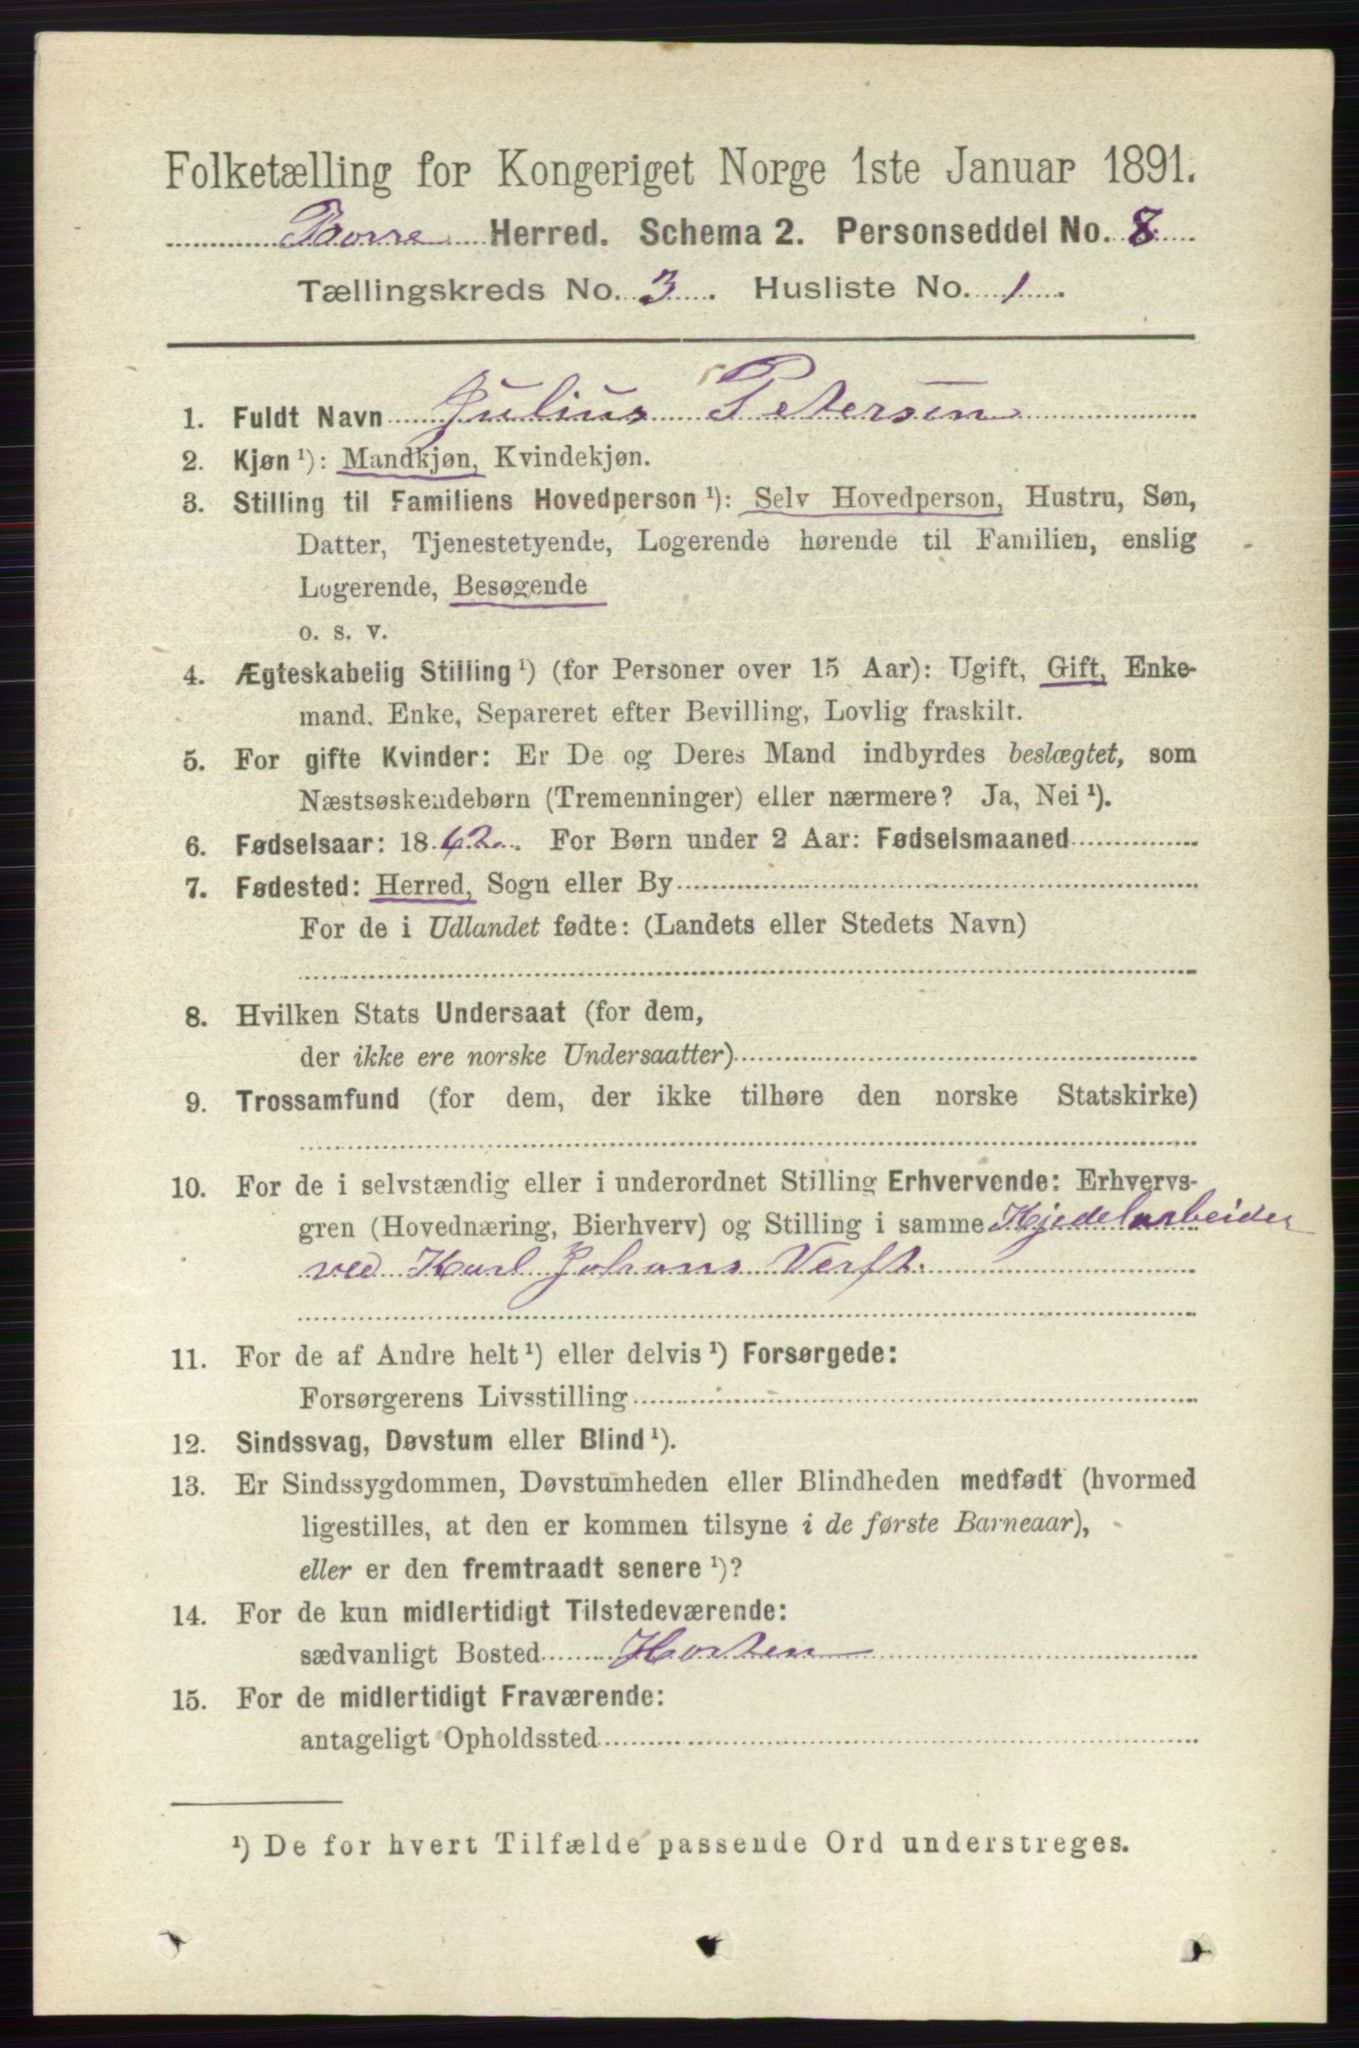 Folketælling for Kongeriget Norge 1ste Januar 1891.
Borre Herred. Schema 2. Personseddel No. 8
Tællingskreds No. 3. Husliste No. 1.
1. Fuldt Navn Julius Petersen
2. Kjøn ¹): Mandkjøn, Kvindekjøn.
3. Stilling til Familiens Hovedperson ¹): Selv Hovedperson, Hustru, Søn,
Datter, Tjenestetyende, Logerende hørende til Familien, enslig
Logerende, Besøgende
o. s. v.
4. Ægteskabelig Stilling ¹) (for Personer over 15 Aar): Ugift, Gift, Enke-
mand, Enke, Separeret efter Bevilling, Lovlig fraskilt.
5. For gifte Kvinder: Er De og Deres Mand indbyrdes beslægtet, som
Næstsøskendebørn (Tremenninger) eller nærmere? Ja, Nei ¹).
6. Fødselsaar: 1862. For Børn under 2 Aar: Fødselsmaaned
7. Fødested: Herred, Sogn eller By
For de i Udlandet fødte: (Landets eller Stedets Navn)
8. Hvilken Stats Undersaat (for dem,
der ikke ere norske Undersaatter)
9. Trossamfund (for dem, der ikke tilhøre den norske Statskirke)
10. For de i selvstændig eller i underordnet Stilling Erhvervende: Erhvervs-
gren (Hovednæring, Bierhverv) og Stilling i samme Kjedelarbeider
ved Karl Johans Verft.
11. For de af Andre helt ¹) eller delvis ¹) Forsørgede:
Forsørgerens Livsstilling
12. Sindssvag, Døvstum eller Blind ¹).
13. Er Sindssygdommen, Døvstumheden eller Blindheden medfødt (hvormed
ligestilles, at den er kommen tilsyne i de første Barneaar),
eller er den fremtraadt senere ¹)?
14. For de kun midlertidigt Tilstedeværende:
sædvanligt Bosted Horten
15. For de midlertidigt Fraværende:
antageligt Opholdssted
¹) De for hvert Tilfælde passende Ord understreges.